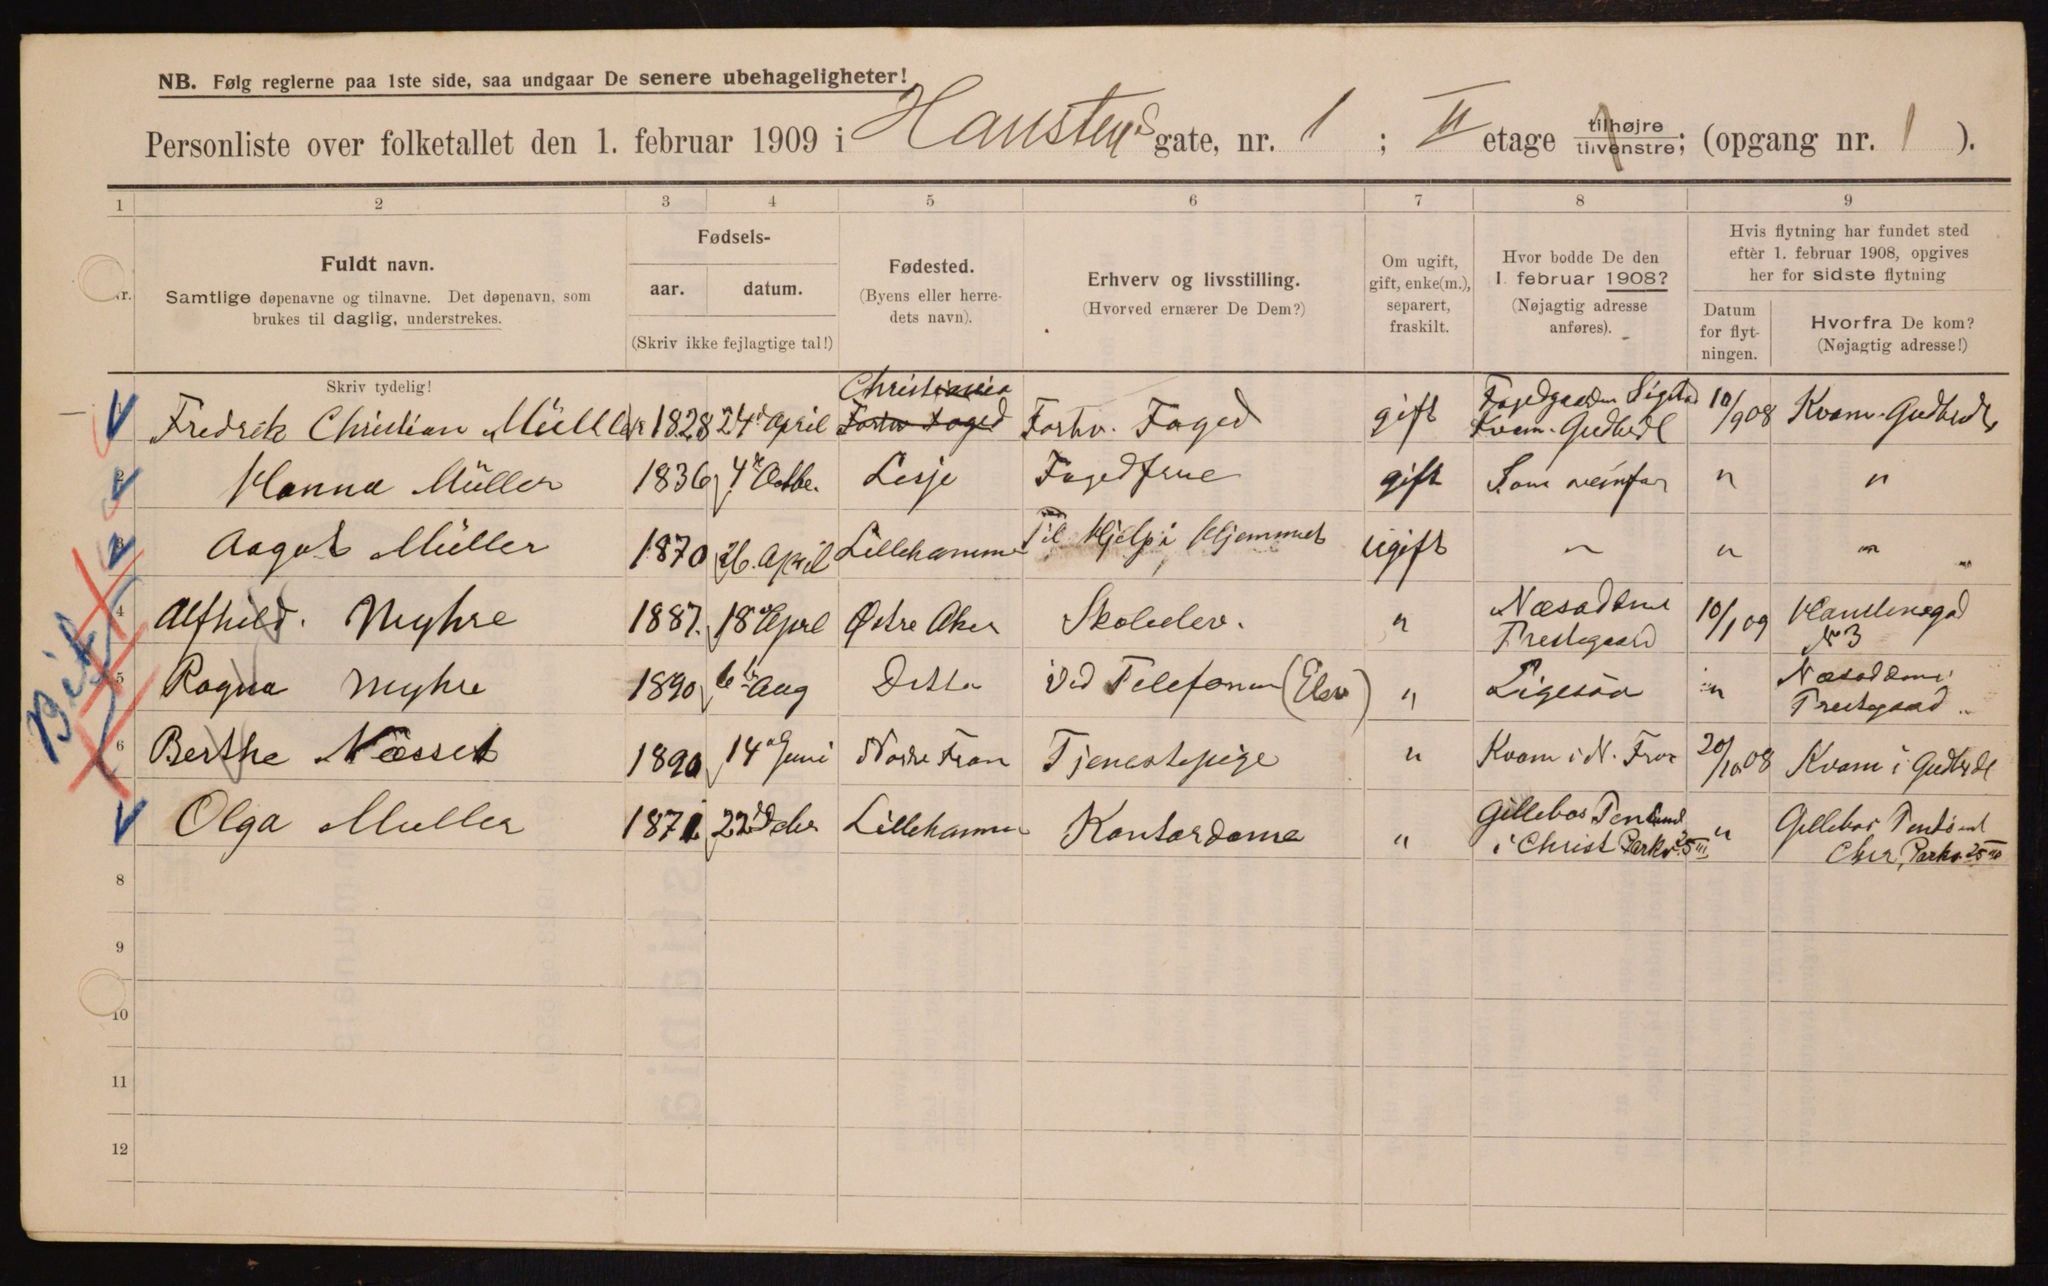 NB. Følg reglerne paa 1ste side, saa undgaar De senere ubehageligheter!
Personliste over folketallet den 1. februar 1909 i Hansteensgate, nr. 1 ; II etage tilhøjre tilvenstre; (opgang nr. 1 ).
1 2 3 4 5 6 7 8 9
Nr.
Fuldt navn.
Samtlige døpenavne og tilnavne. Det døpenavn, som
brukes til daglig, understrekes.
Skriv tydelig!
Fødsels-
aar. datum.
(Skriv ikke fejlagtige tal!)
Fødested.
(Byens eller herre-
dets navn).
Erhverv og livsstilling.
(Hvorved ernærer De Dem?)
Om ugift,
gift, enke(m.),
separert,
fraskilt.
Hvor bodde De den
1. februar 1908?
(Nøjagtig adresse
anføres).
Hvis flytning har fundet sted
efter 1. februar 1908, opgives
her for sidste flytning
Datum
for flyt-
ningen.
Hvorfra De kom?
(Nøjagtig adresse!)
Christiania Fogedgaarden
1 Fredrik Christian Müller 1828 24d April Forhv. Foged Forhv. Foged gift Kvam. Gudbrdl 10/9 08 Kvam. Gudbrdl
2 Hanna Müller 1836 4de Lesje Fogedfrue gift Som ovenfor " "
3 Aagot Müller 1870 26. April Lillehammer Til Hjelp i Hjemmet ugift " " "
4 Alfhild. Myhre 1887. 18d April Østre Aker Skoleelev. " Næsoddens Prestegaard 10/1 09 No 3
5 Ragna Myhre 1890 6te Aug Ditto Ved Telefonen (Elev) " Ligesaa " Næsoddens Prestegaard
6 Berthe Næsset 1890 14d Juni Nordre Fron Tjenestepige " Kvam i N. Fron 20/10 08 Kvam i Gudbrdl
Olga Müller 1871 22d Lillehammer Kontordame " Gillebos i Christ Parkv. 25 III " Gillebos Parkv. 25 III
8
9
10
11
12